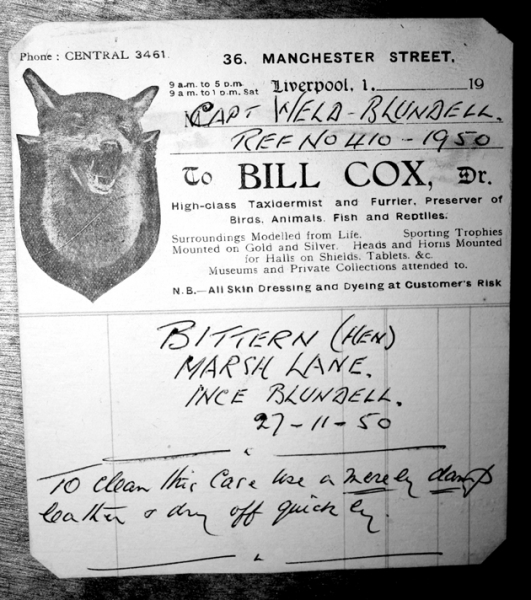 Phone : CENTRAL 3461.
36. MANCHESTER STREET.
9 a.m. to 5 p.m.
9 a.m. to 1 p.m. Sat
Liverpool, 1. 19
M CAPT WELD-BLUNDELL.
REF NO 410-1950
To BILL COX, Dr.
High-class Taxidermist and Furrier, Preserver of
Birds, Animals, Fish and Reptiles.
Surroundings Modelled from Life. Sporting Trophies
Mounted on Gold and Silver. Heads and Horns Mounted
for Halls on Shields, Tablets, &c.
Museums and Private Collections attended to.
N.B.—All Skin Dressing and Dyeing at Customer's Risk
BITTERN (HEN)
MARSH LANE.
INCE BLUNDELL.
27-11-50
To clean this Case use a merely damp
leather & dry off quickly.